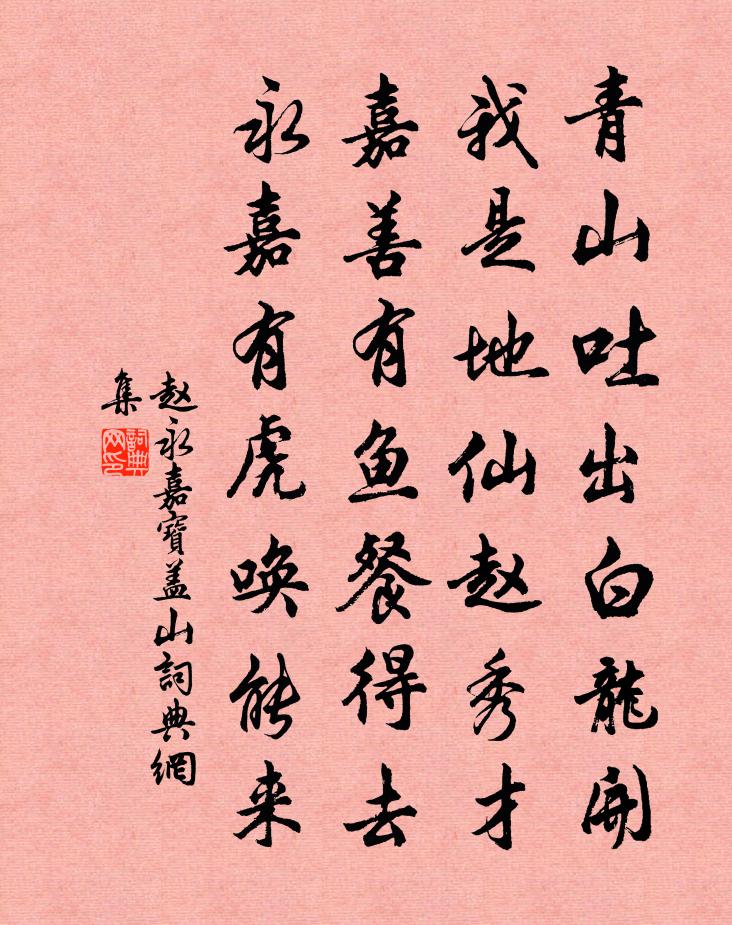 青山吐出白龍開
我是地仙赵秀才
嘉善有鱼餐得去
永嘉有虎唤能来
赵永嘉寶盖山詞典網
集
詞典
网印